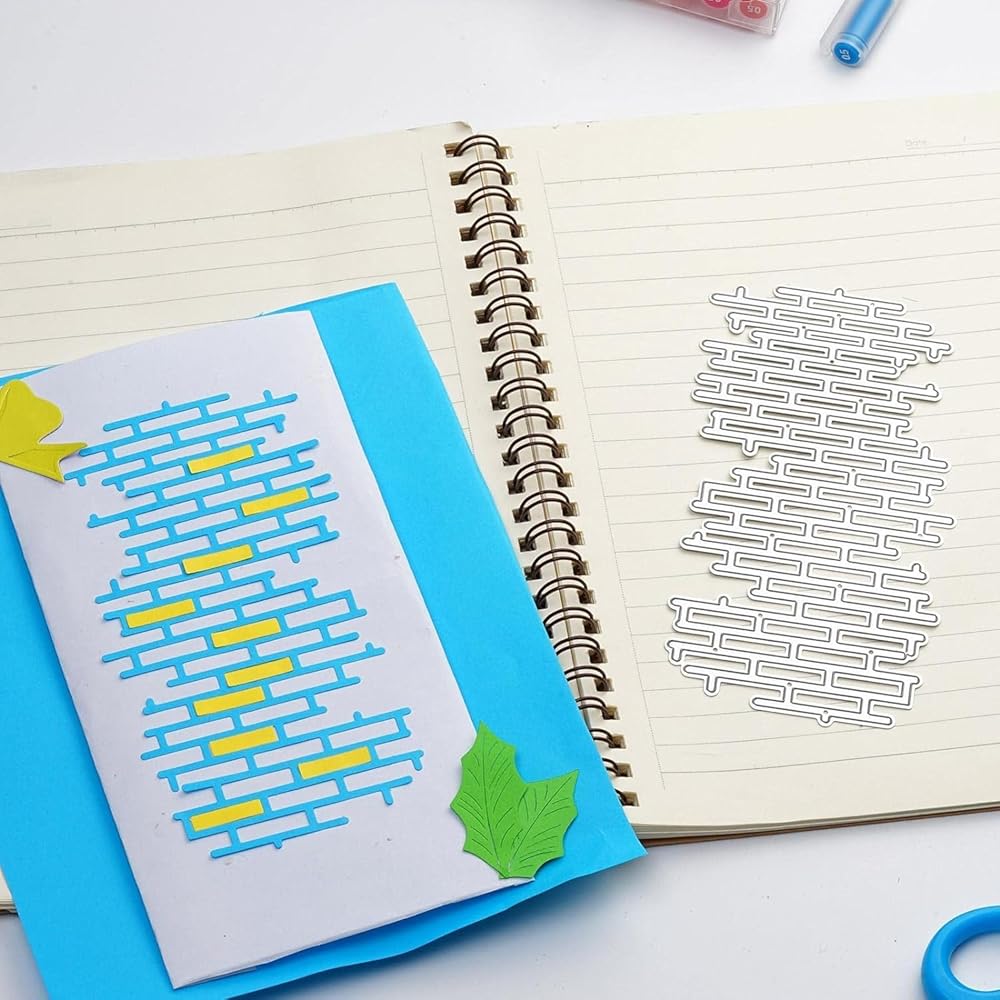 0.5
0.5
Date